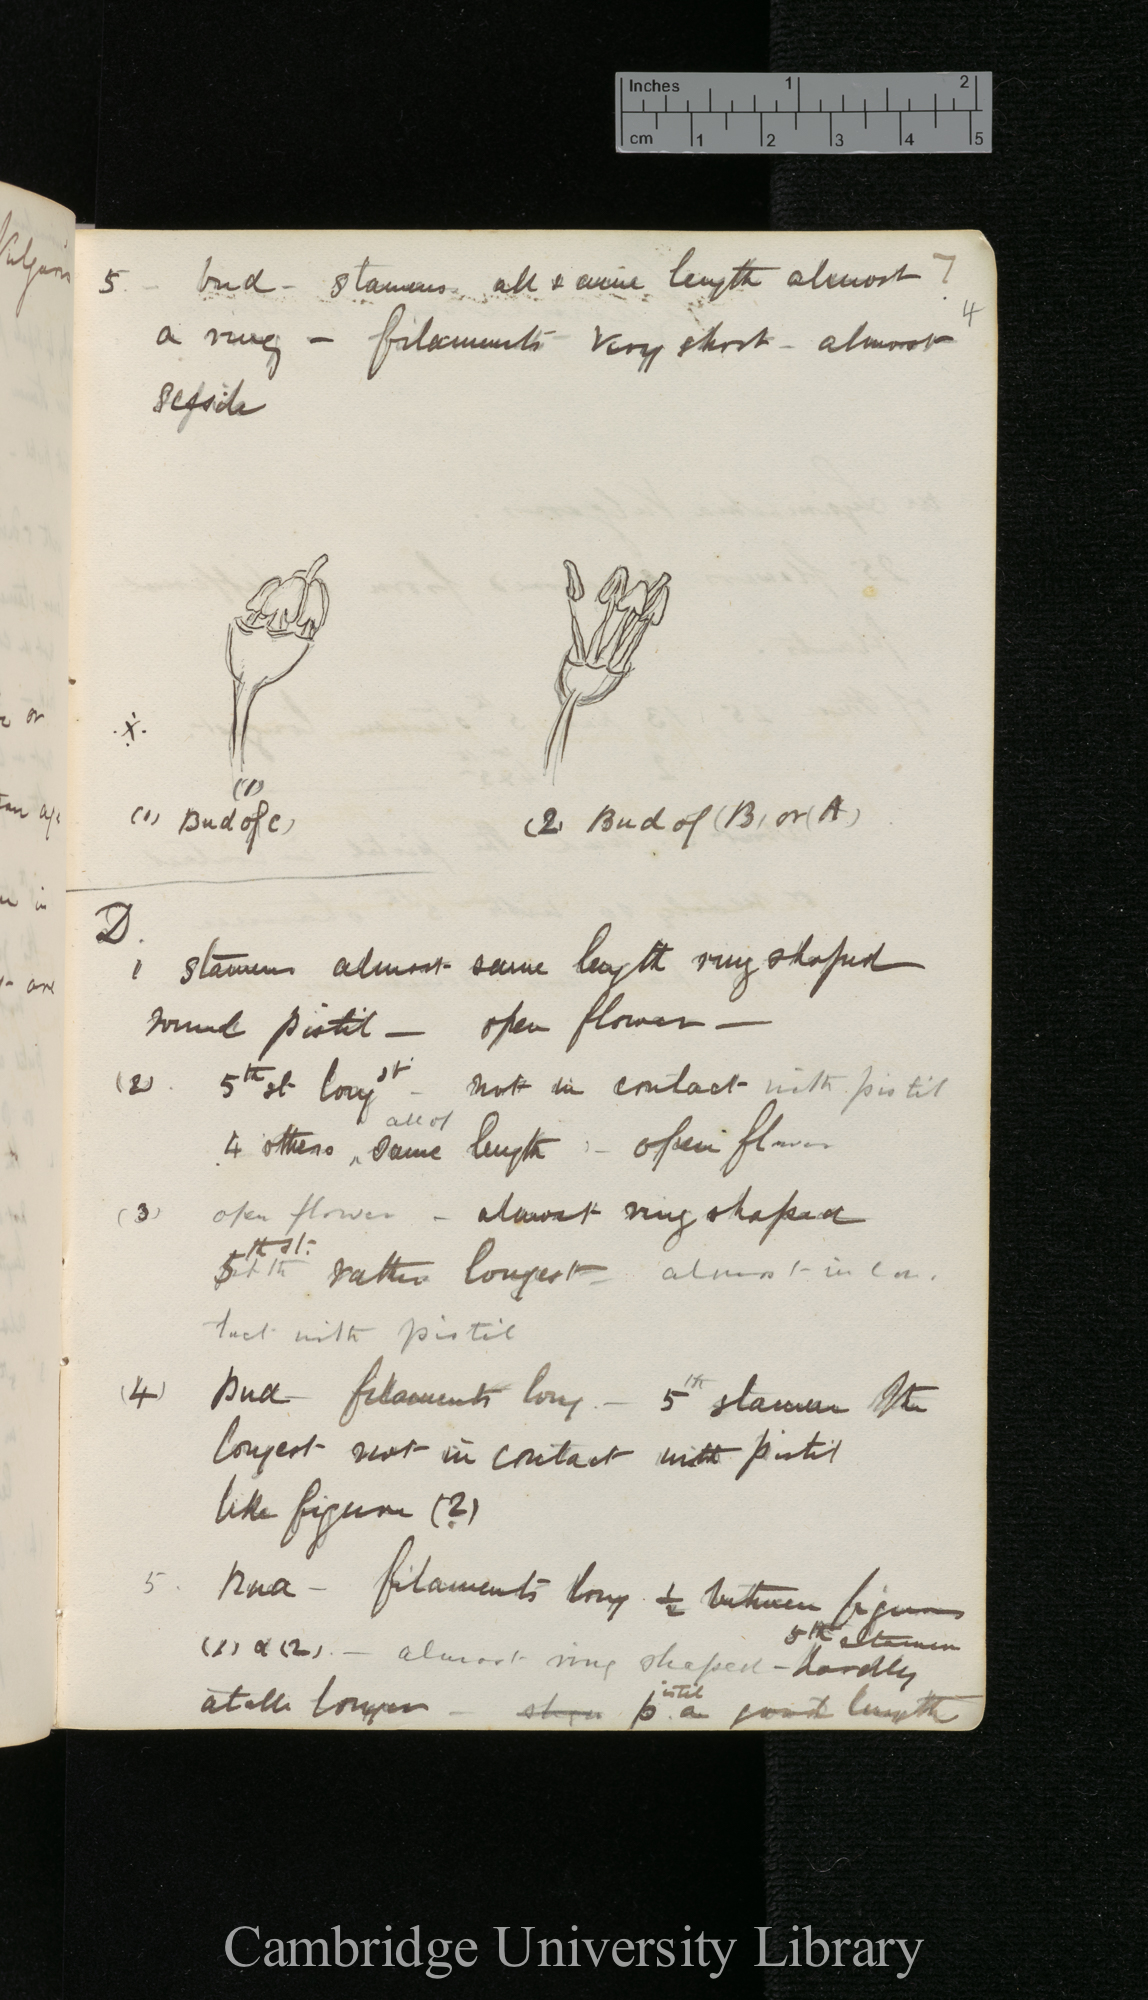 Inches 1 2
cm 1 2 3 4 5
7
4
5 - bud - stamens all same length almost
a ring - filaments very short - almost
sessile
(1)
(1) Bud of C)
(2) Bud of (B) or (A)
D.
1 stamens almost same length ring shaped
round pistil — open flower —
(2). 5th st longst - not in contact with pistil
4 others all of same length - open flower
(3) open flower - almost ring shaped
5th st. rather longest - almost in con-
tact with pistil
(4) Bud - filaments long - 5th stamen the
longest not in contact with pistil
like figure (2)
5. Bud - filaments long ½ between figures
(1) & (2). - almost ring shaped - 5th stamen hardly
at all longer - pistil a good length
Cambridge University Library